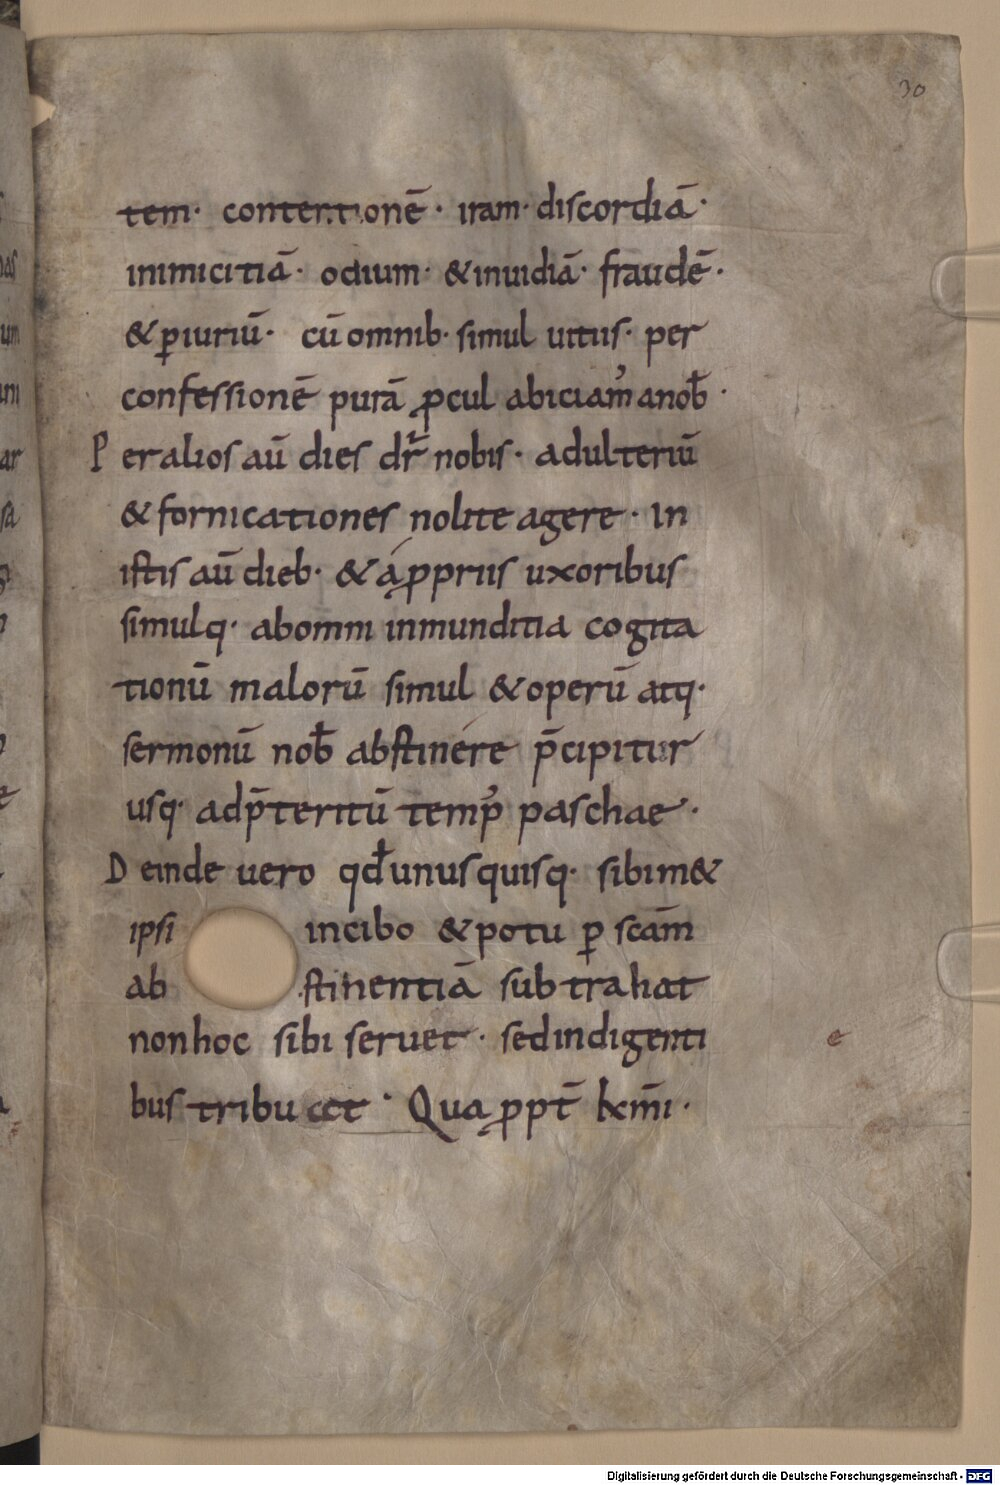 30
tem· contentionē· iram· discordiā·
inimicitiā· odium· &inuidiā· fraudē·
&p̱iuriū· cū omnib· simul uitiis· per
confessionē purā ꝓcul abiciam᾽ anob̄·
P er alios aū dies dr̄ nobis· adulteriū
& fornicationes nolite agere· In
istis aū dieb· & á ꝓpriis uxoribus
simulq· abomni inmunditia cogita
tionū malorū simul & operū atq·
sermonū nob̄ abstinére p̄cipitur
usq· adp̄teritū temp᾽ paschae·
D einde uero qd̄ unusquisq· sibim&
ipsi incibo & potu ꝑ scām
ab stinentiā subtrahat
nonhoc sibi seruet· sedindigenti
bus tribuat· Qua ꝓpt̄ kmi·
e
Digitalisierung gefördert durch die Deutsche Forschungsgemeinschaft - DFG